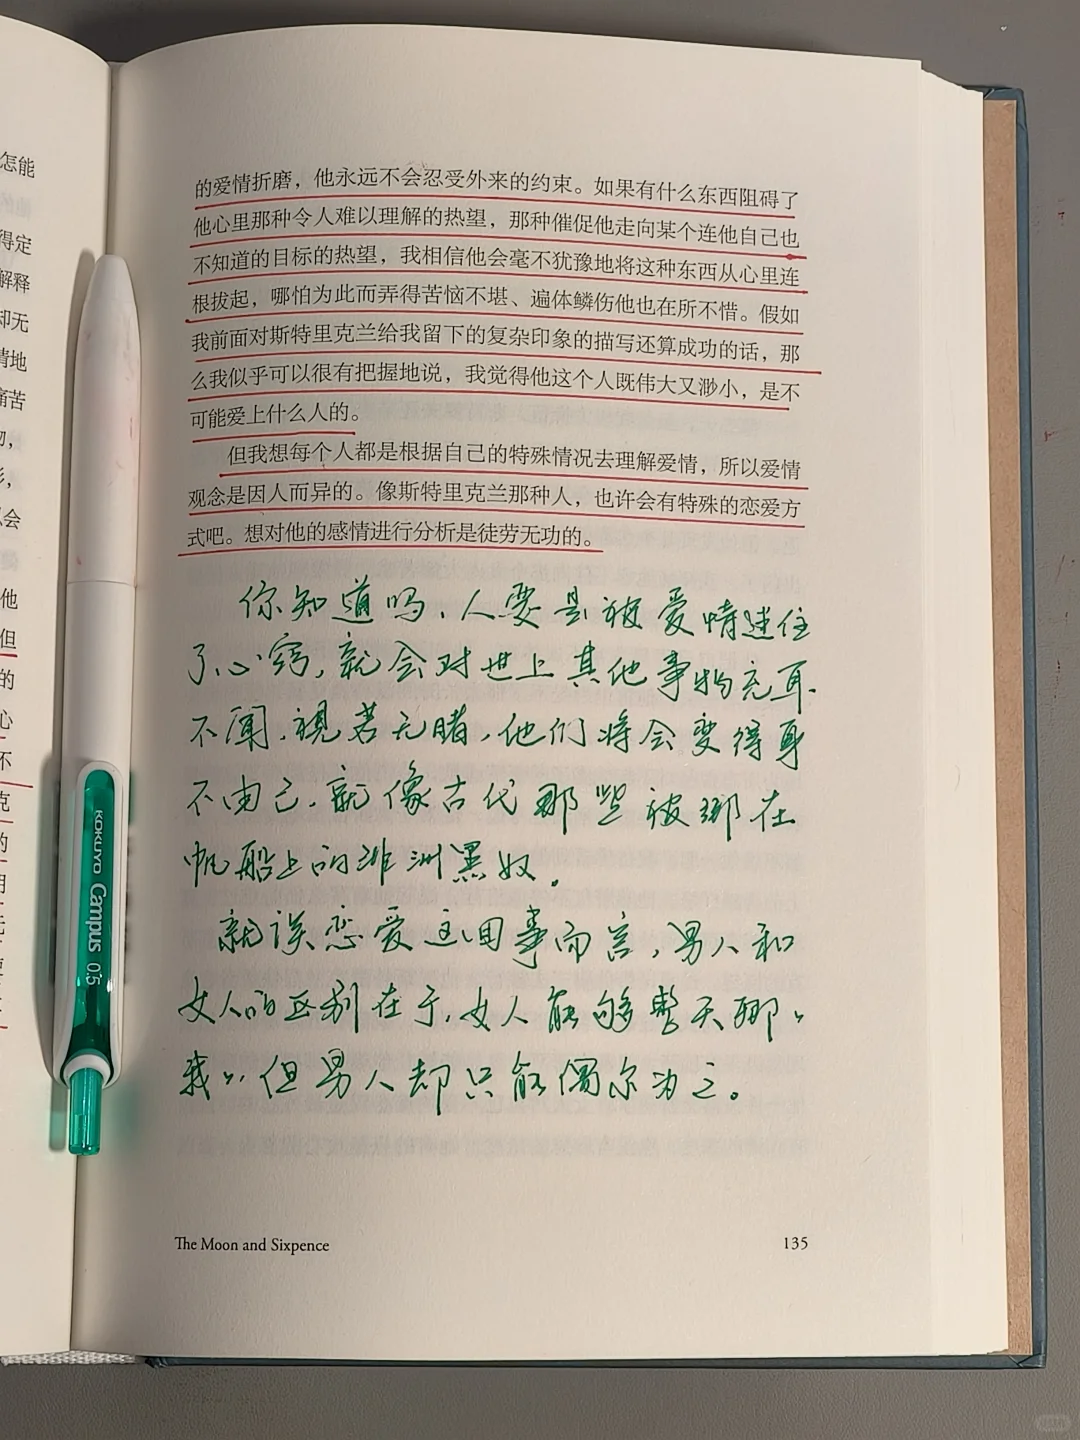 怎能
得定
解释
却无
情地
痛苦
他
但
的
心
不
克
的
的爱情折磨，他永远不会忍受外来的约束。如果有什么东西阻碍了
他心里那种令人难以理解的热望，那种催促他走向某个连他自己也
不知道的目标的热望，我相信他会毫不犹豫地将这种东西从心里连
根拔起，哪怕为此而弄得苦恼不堪、遍体鳞伤他也在所不惜。假如
我前面对斯特里克兰给我留下的复杂印象的描写还算成功的话，那
么我似乎可以很有把握地说，我觉得他这个人既伟大又渺小，是不
可能爱上什么人的。
但我想每个人都是根据自己的特殊情况去理解爱情，所以爱情
观念是因人而异的。像斯特里克兰那种人，也许会有特殊的恋爱方
式吧。想对他的感情进行分析是徒劳无功的。
你知道吗，人要是被爱情迷住
了心窍，就会对世上其他事物充耳
不闻，视若无睹，他们将会变得身
不由己，就像古代那些被绑在
帆船上的非洲黑奴。
就谈恋爱这回事而言，男人和
女人的区别在于，女人能够整天卿卿
我我，但男人却只能偶尔为之。
KOKUYO Campus 0.5
The Moon and Sixpence
135